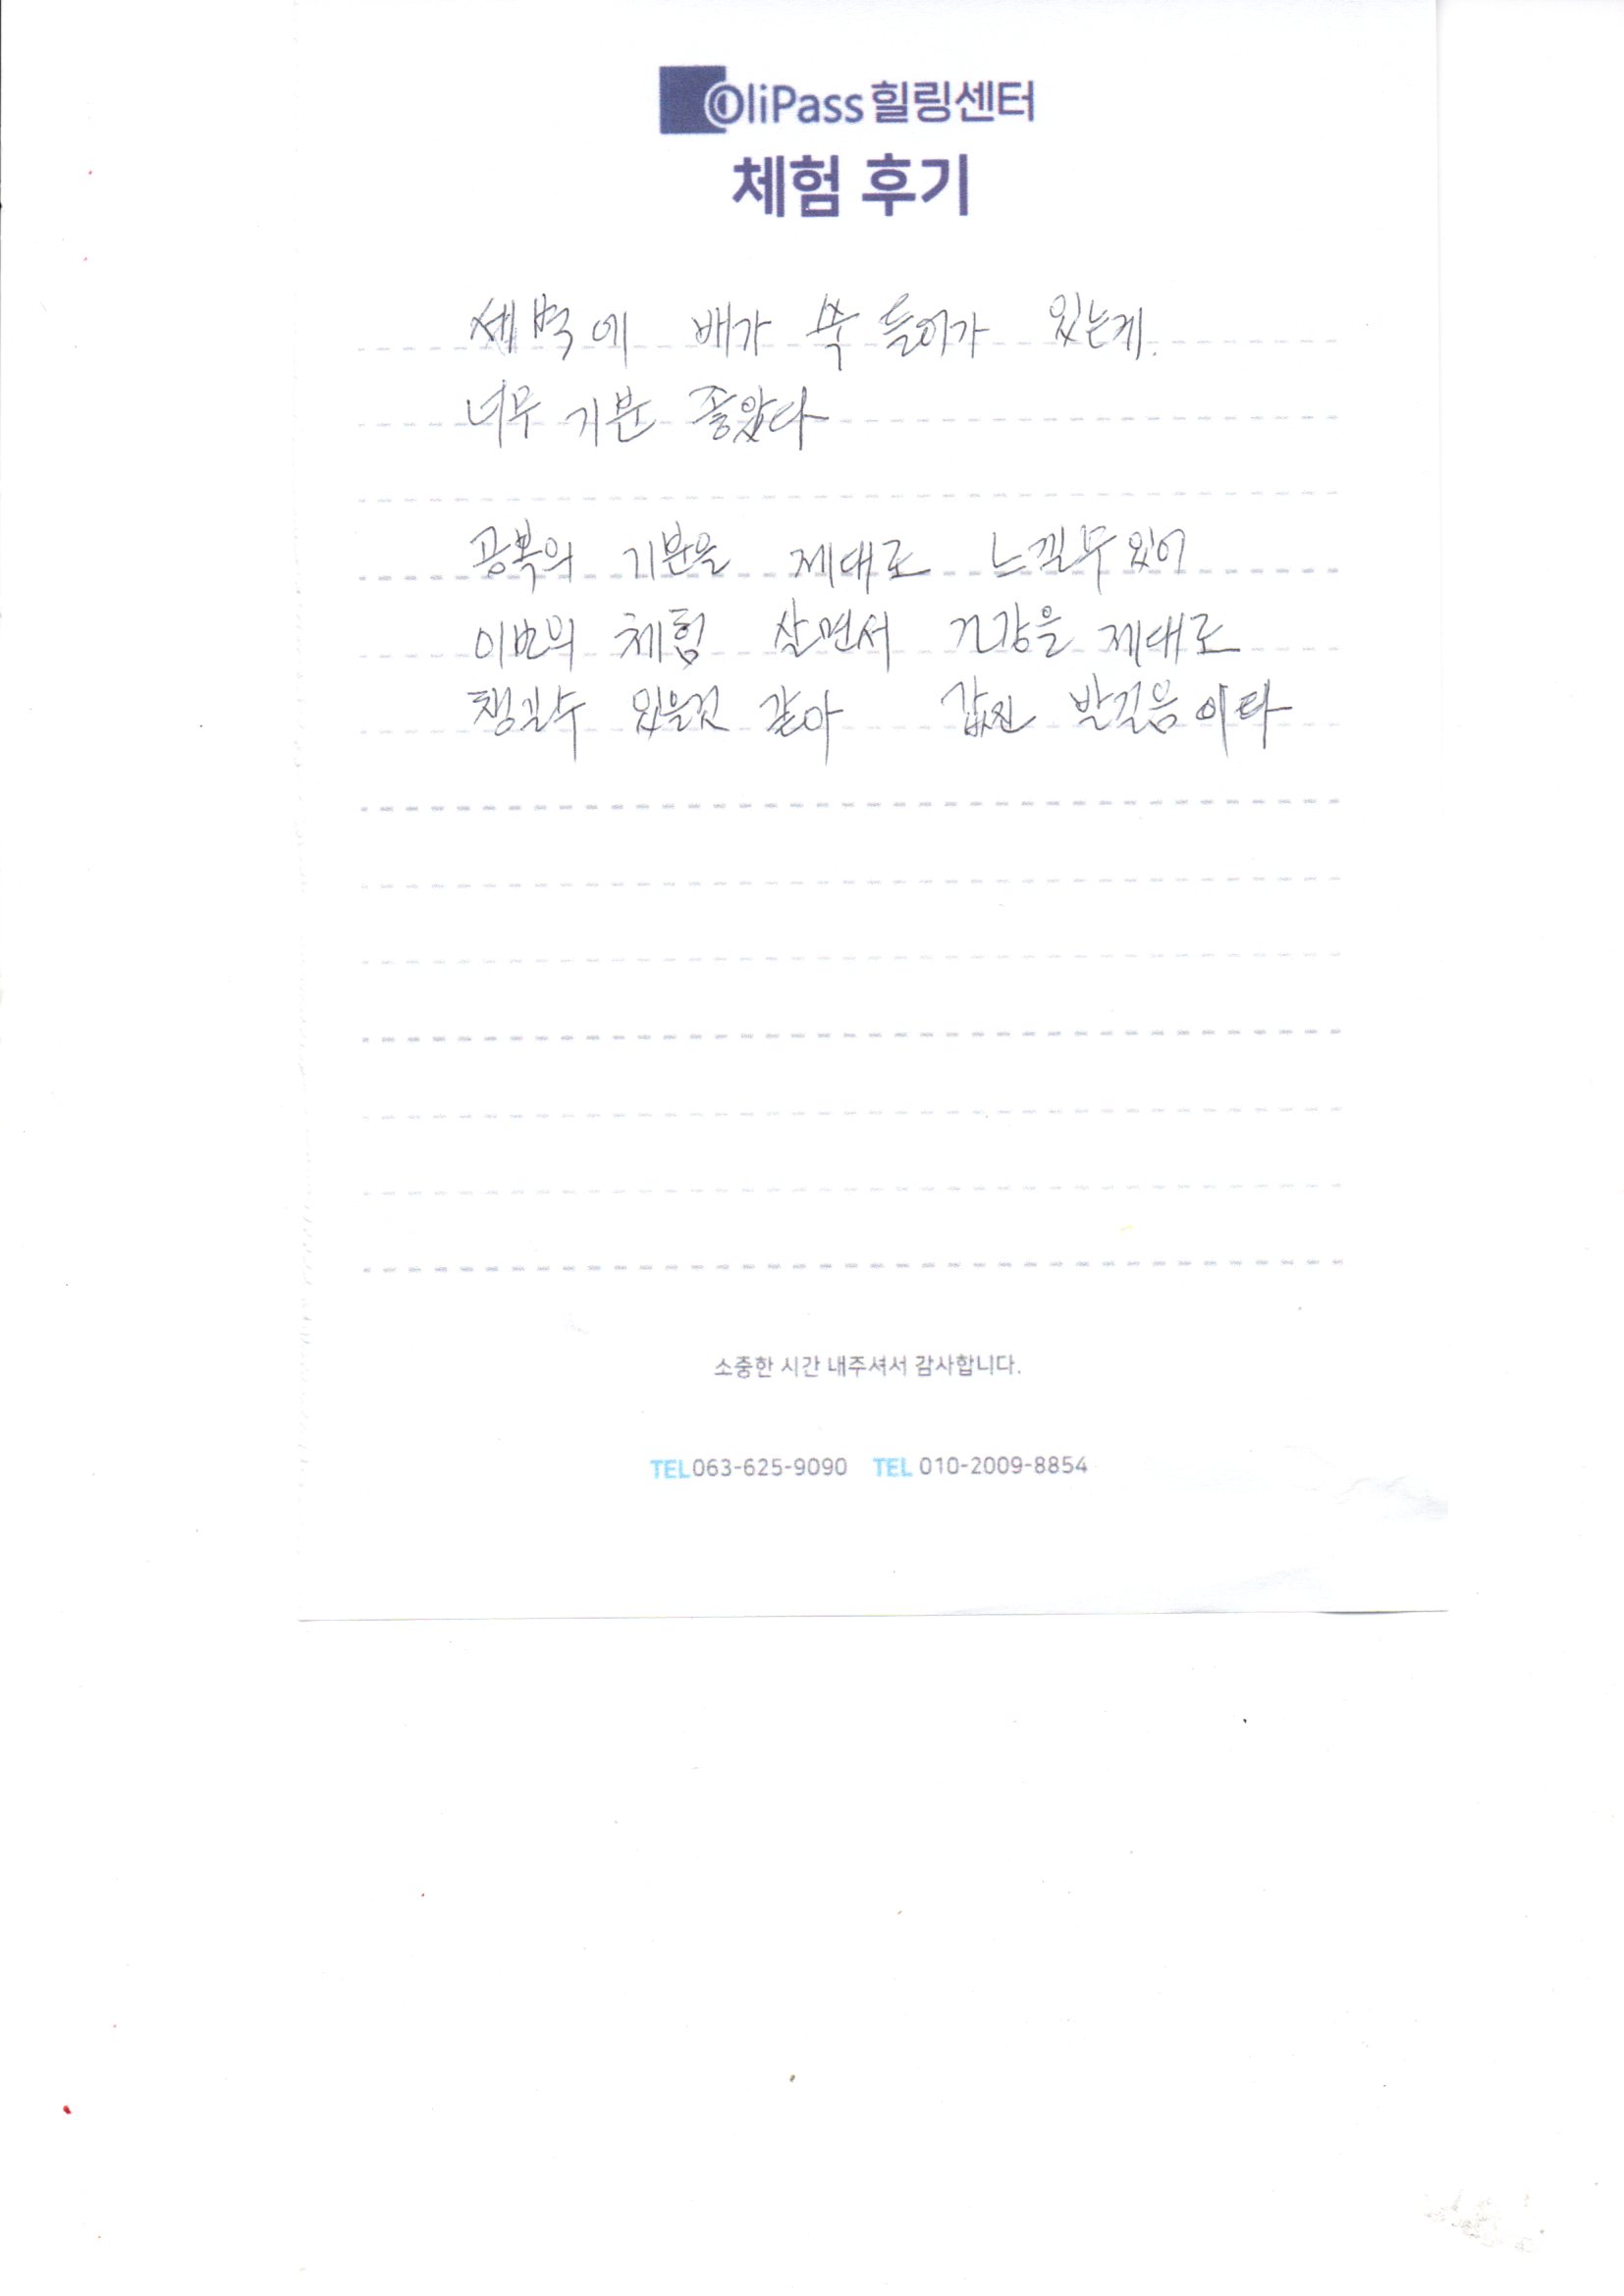 OliPass 힐링센터
체험 후기
새벽에 배가 쑥 들어가 있는게.
너무 기분 좋았다
공복의 기분을 제대로 느낄수 있어
이번의 체험 살면서 건강을 제대로
챙길수 있을것 같아 값진 발걸음이다
소중한 시간 내주셔서 감사합니다.
TEL 063-625-9090 TEL 010-2009-8854